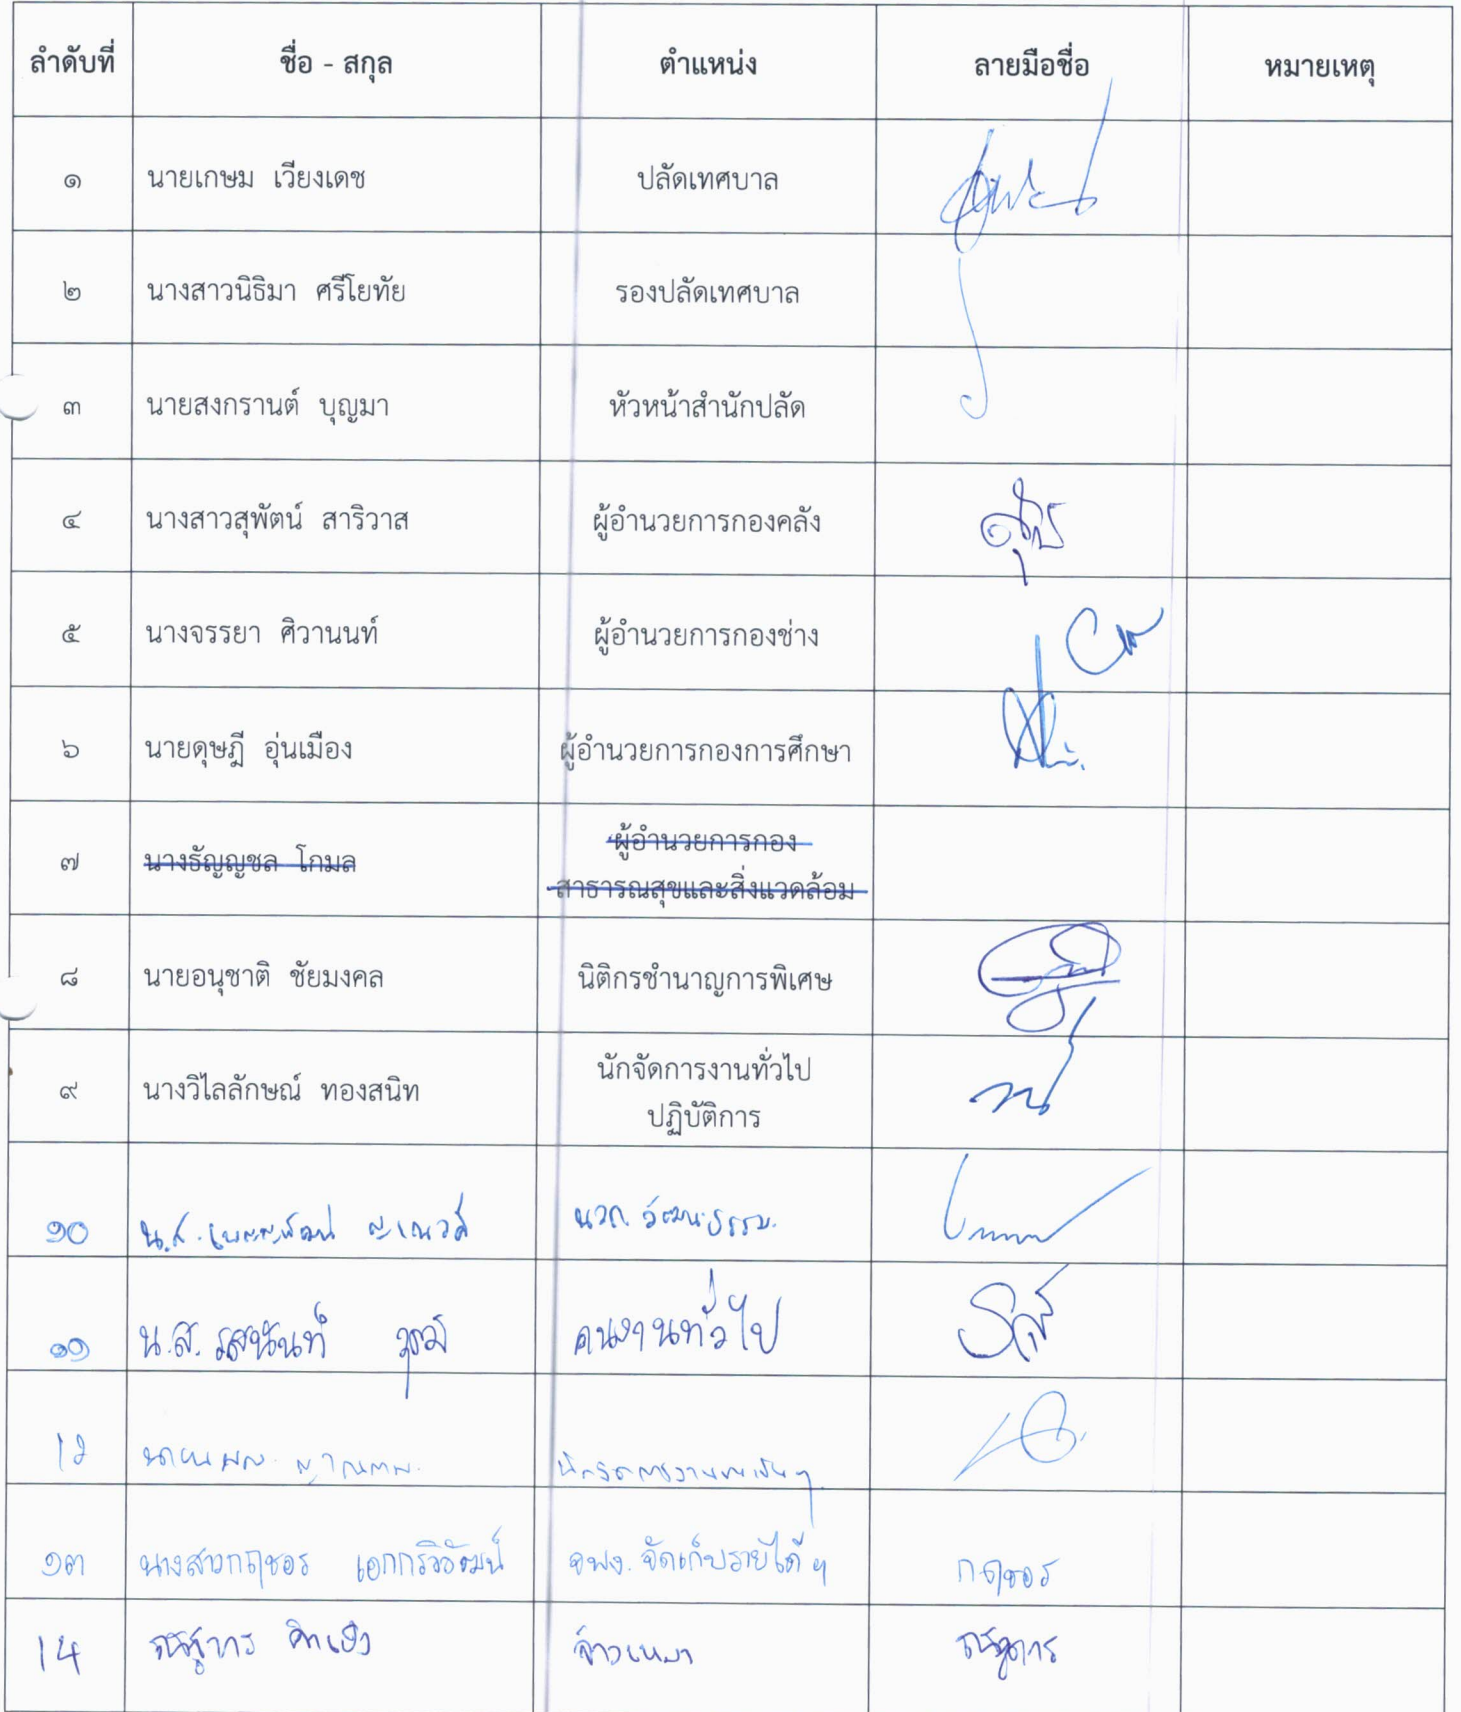 ลำดับที่ ชื่อ - สกุล ตำแหน่ง ลายมือชื่อ หมายเหตุ
๑ นายเกษม เวียงเดช ปลัดเทศบาล
๒ นางสาวนิธิมา ศรีโยทัย รองปลัดเทศบาล
๓ นายสงกรานต์ บุญมา หัวหน้าสำนักปลัด
๔ นางสาวสุพัตน์ สาริวาส ผู้อำนวยการกองคลัง
๕ นางจรรยา ศิวานนท์ ผู้อำนวยการกองช่าง
๖ นายดุษฎี อุ่นเมือง ผู้อำนวยการกองการศึกษา
๗ นางธัญญชล โกมล ผู้อำนวยการกอง
สาธารณสุขและสิ่งแวดล้อม
๘ นายอนุชาติ ชัยมงคล นิติกรชำนาญการพิเศษ
๙ นางวิไลลักษณ์ ทองสนิท นักจัดการงานทั่วไป
ปฏิบัติการ
๑๐ น.ส. นวก. วัฒนธรรม
๑๑ น.ส. รสนันท์ คนงานทั่วไป
12
๑๓ นางสาวกฤชอร จพง. จัดเก็บรายได้ฯ กฤชอร
14 จ้างเหมา